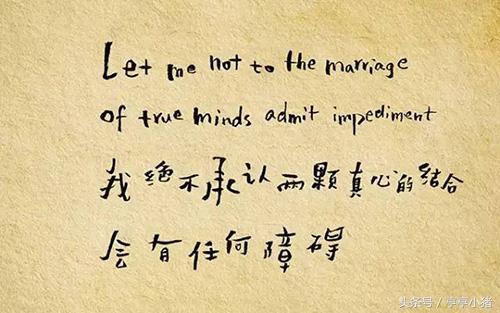 Let me not to the marriage
of true minds admit impediment
我绝不承认两颗真心的结合
会有任何障碍
头条号 / 亭亭小猪